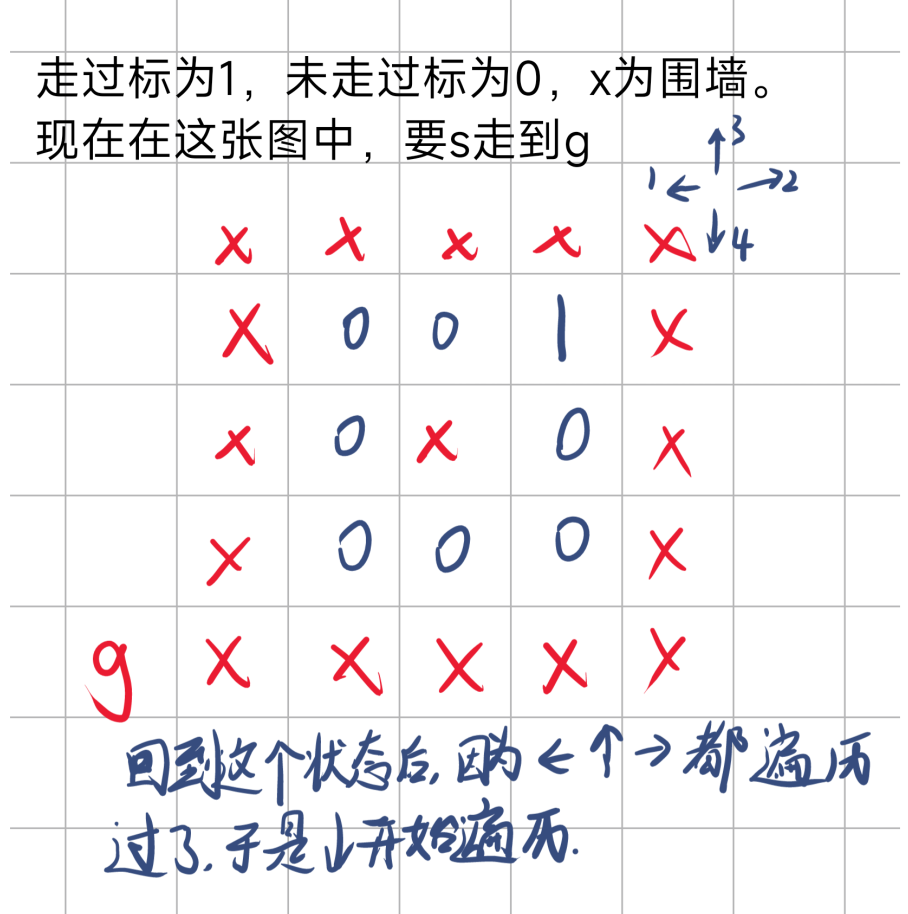 走过标为1，未走过标为0，x为围墙。
现在在这张图中，要s走到g
↑3
1← →2
x x x x x ↓4
x 0 0 1 x
x 0 x 0 x
x 0 0 0 x
g x x x x x
回到这个状态后,因为←↑→都遍历
过了,于是↓开始遍历.